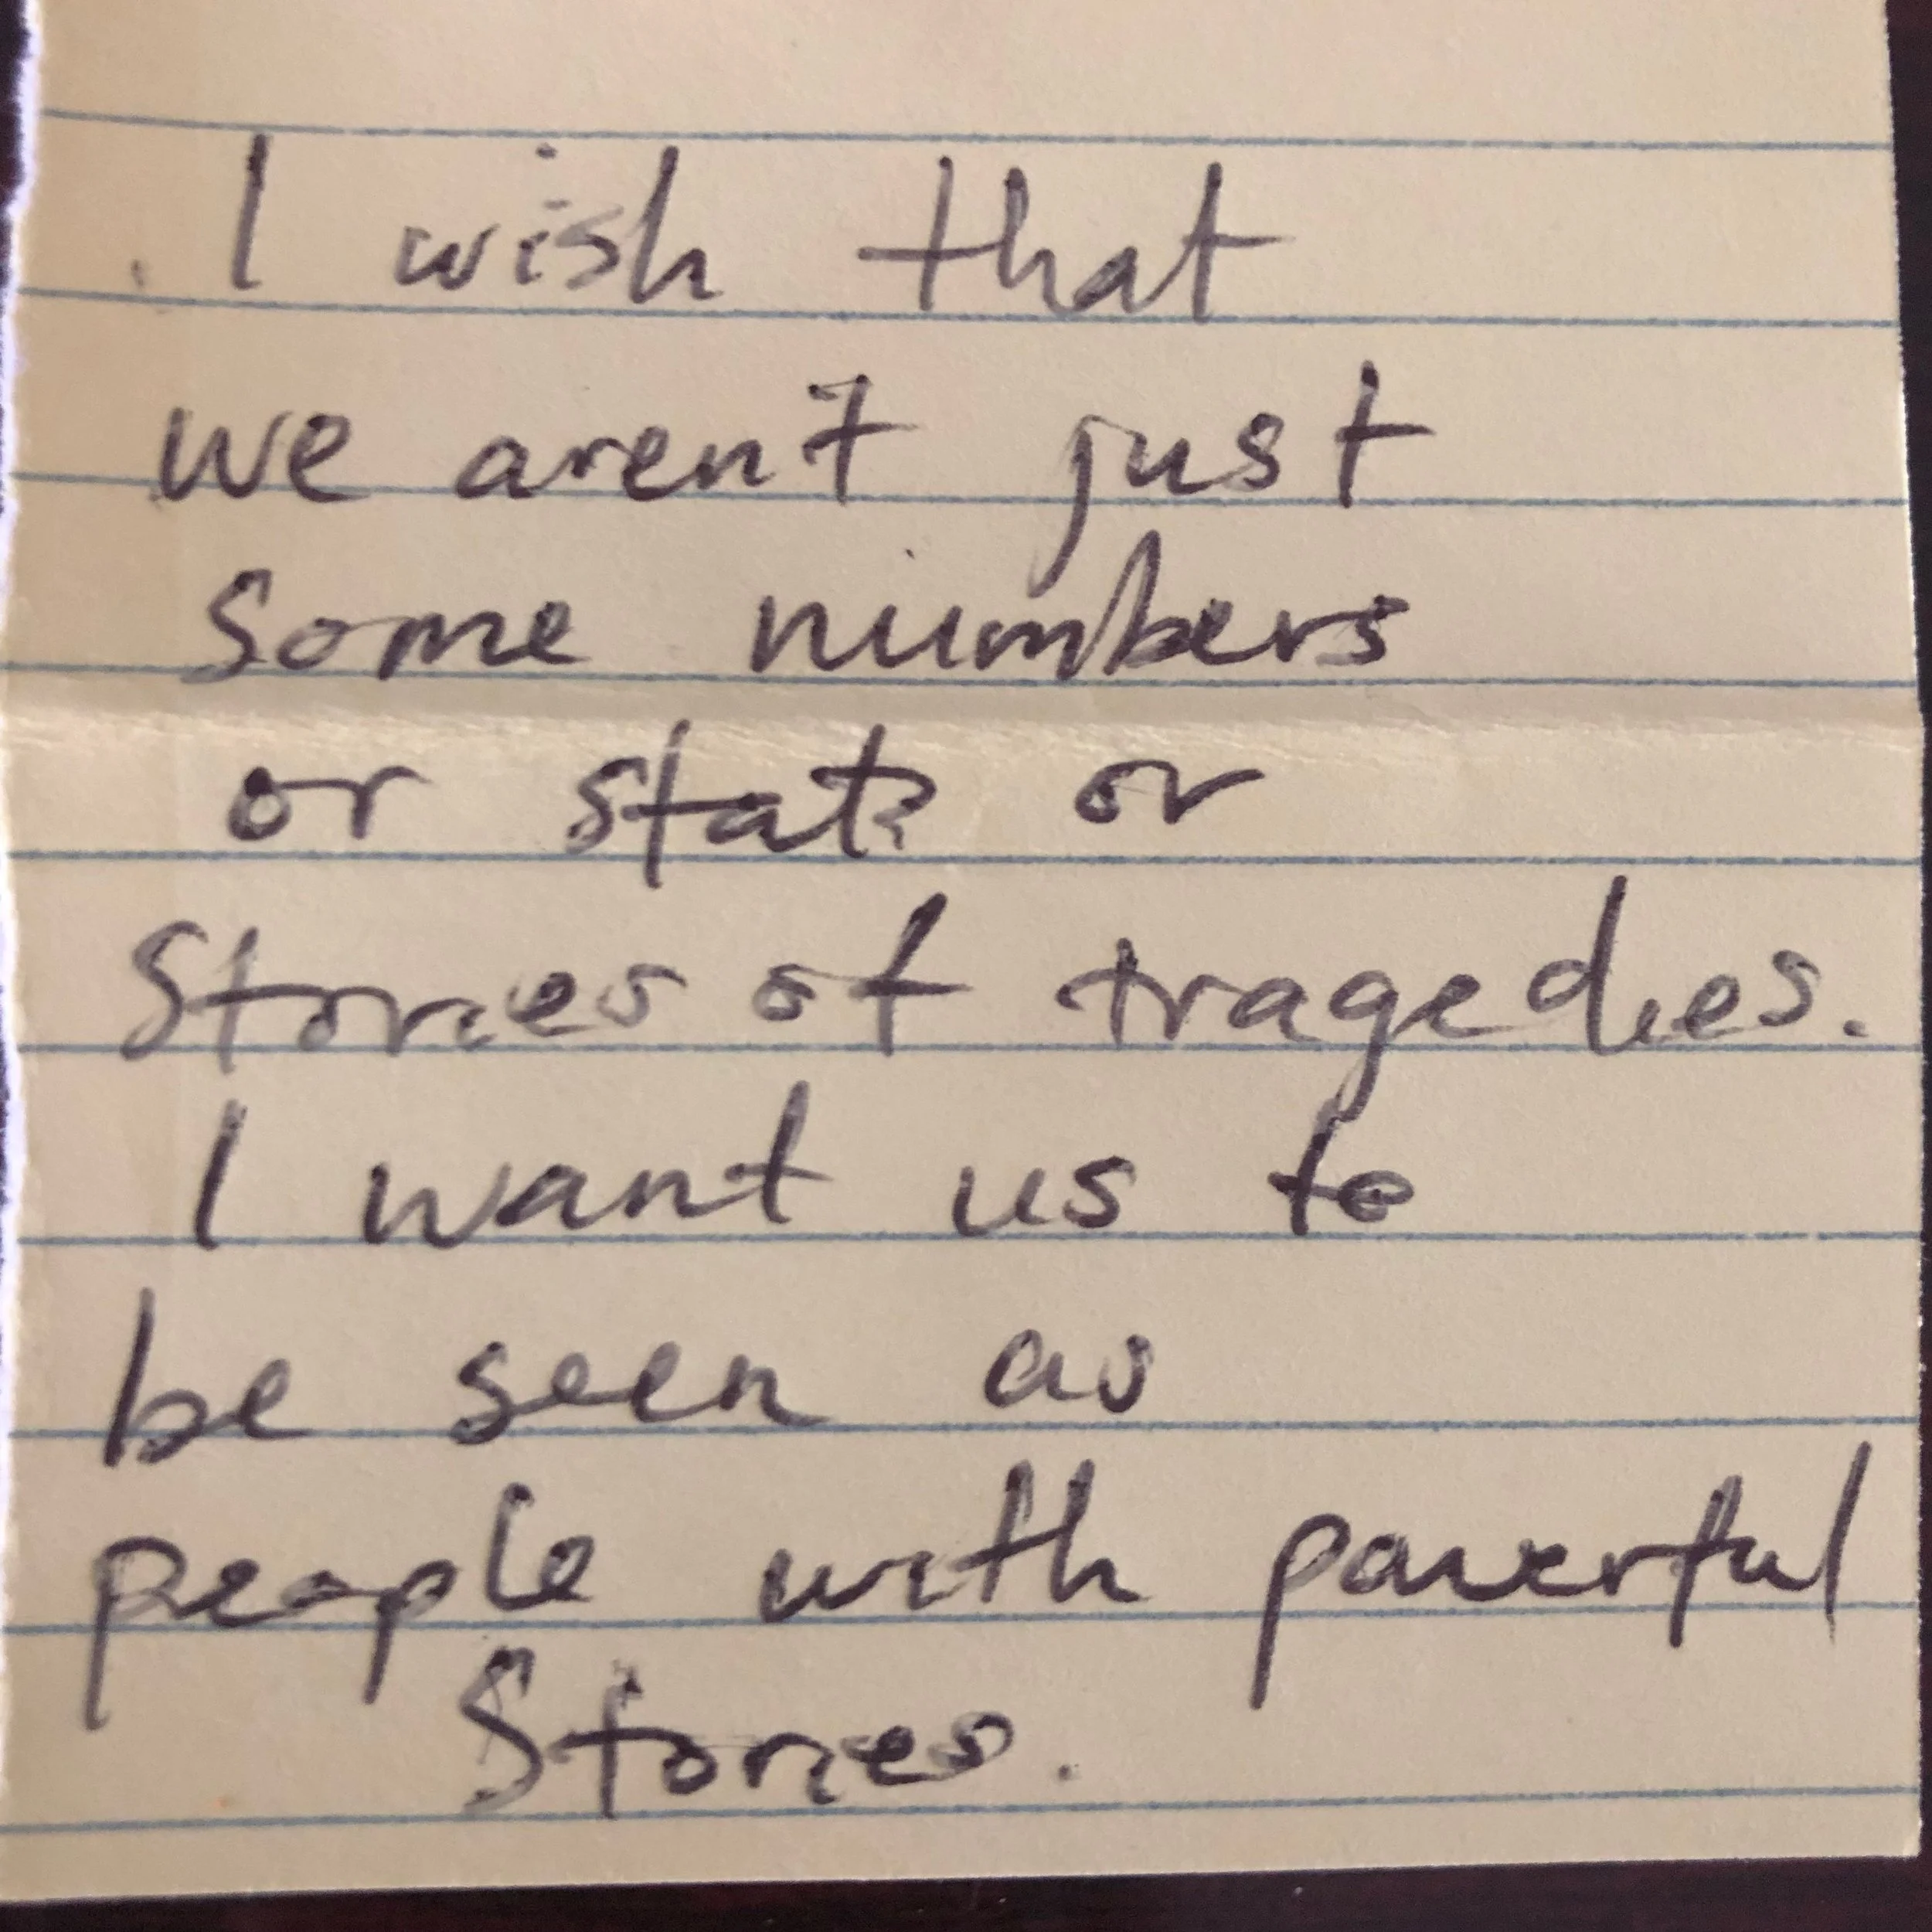 I wish that
we aren't just
some numbers
or stats or
Stories of tragedies.
I want us to
be seen as
people with powerful
Stories.